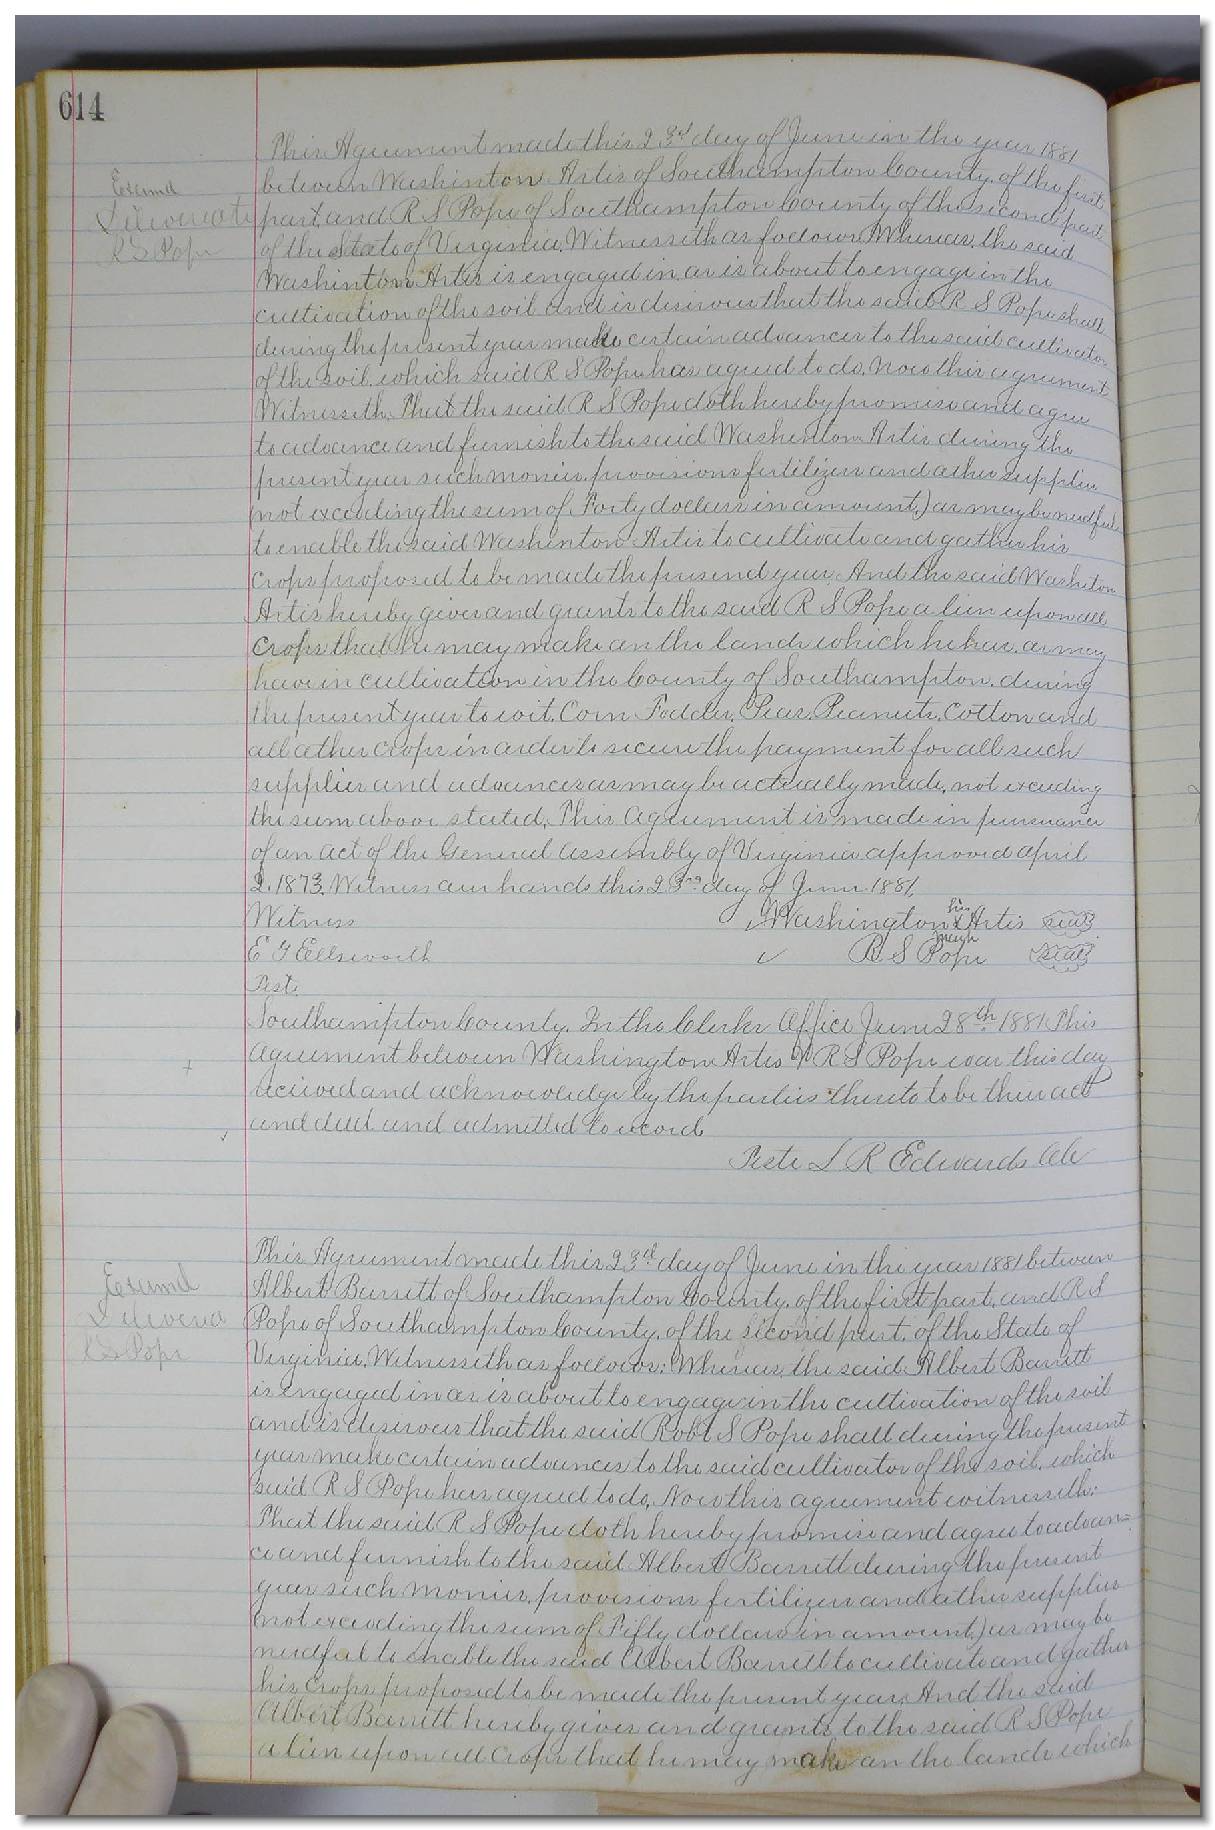 614
This Agreement made this 23rd day of June in the year 1881
Examd
between Washinton Artis of Southampton County. of the first
Delivered to
part, and R S Pope of Southampton County of the second part
R S Pope
of the State of Virginia, Witnesseth as follows Whereas, the said
Washinton Artis is engaged in or is about to engage in the
cultivation of the soil and is desirous that the said R S Pope shall
during the present year make certain advances to the said cultivator
of the soil, which said R S Pope has agreed to do, Now this agreement
Witnesseth, That the said R S Pope doth hereby promise and agree
to advance and furnish to the said Washinton Artis during the
present year such monies, provisions fertilizers and other supplies
(not exceeding the sum of Forty dollars in amount,) as may be needful
to enable the said Washinton Artis to cultivate and gather his
Crops proposed to be made the presend year, And the said Washiton
Artis hereby gives and grants to the said R S Pope a lien upon all
Crops that he may make on the lands which he has, or may
have in cultivation in the County of Southampton, during
the present year to wit, Corn Fodder, Peas, Peanuts, Cotton and
all other crops in order to secure the payment for all such
supplies and advances as may be actually made, not exceeding
the sum above stated, This Agreement is made in pursuance
of an act of the General Assembly of Virginia approved april
2, 1873, Witness our hands this 23rd day of June 1881,
Witness Washington his x mark Artis seal
E G Ellsworth R S Pope seal
Teste
Southampton County, In the Clerks Office June 28th 1881, This
Agreement between Washington Artis & R S Pope was this day
received and acknowledge by the parties thereto to be their act
and deed and admitted to record
Teste L R Edwards Clk
This Agreement made this 23rd day of June in the year 1881 between
Examd
Albert Barrett of Southampton County, of the first part, and R S
Delivered
Pope of Southampton County, of the second part, of the State of
R S Pope
Virginia, Witnesseth as follows; Whereas, the said Albert Barrett
is engaged in or is about to engage in the cultivation of the soil
and is desirous that the said Robt S Pope shall during the present
year make certain advances to the said cultivator of the soil, which
said R S Pope has agreed to do, Now this agreement witnesseth;
That the said R S Pope doth hereby promise and agree to advan=
ce and furnish to the said Albert Barrett during the present
year such monies, provisions fertilizers and other supplies
(not exceeding the sum of Fifty dollars in amount,) as may be
needful to enable the said Albert Barrett to cultivate and gather
his Crops proposed to be made the present year, And the said
Albert Barrett hereby gives and grants to the said R S Pope
a lien upon all Crops that he may make on the lands which